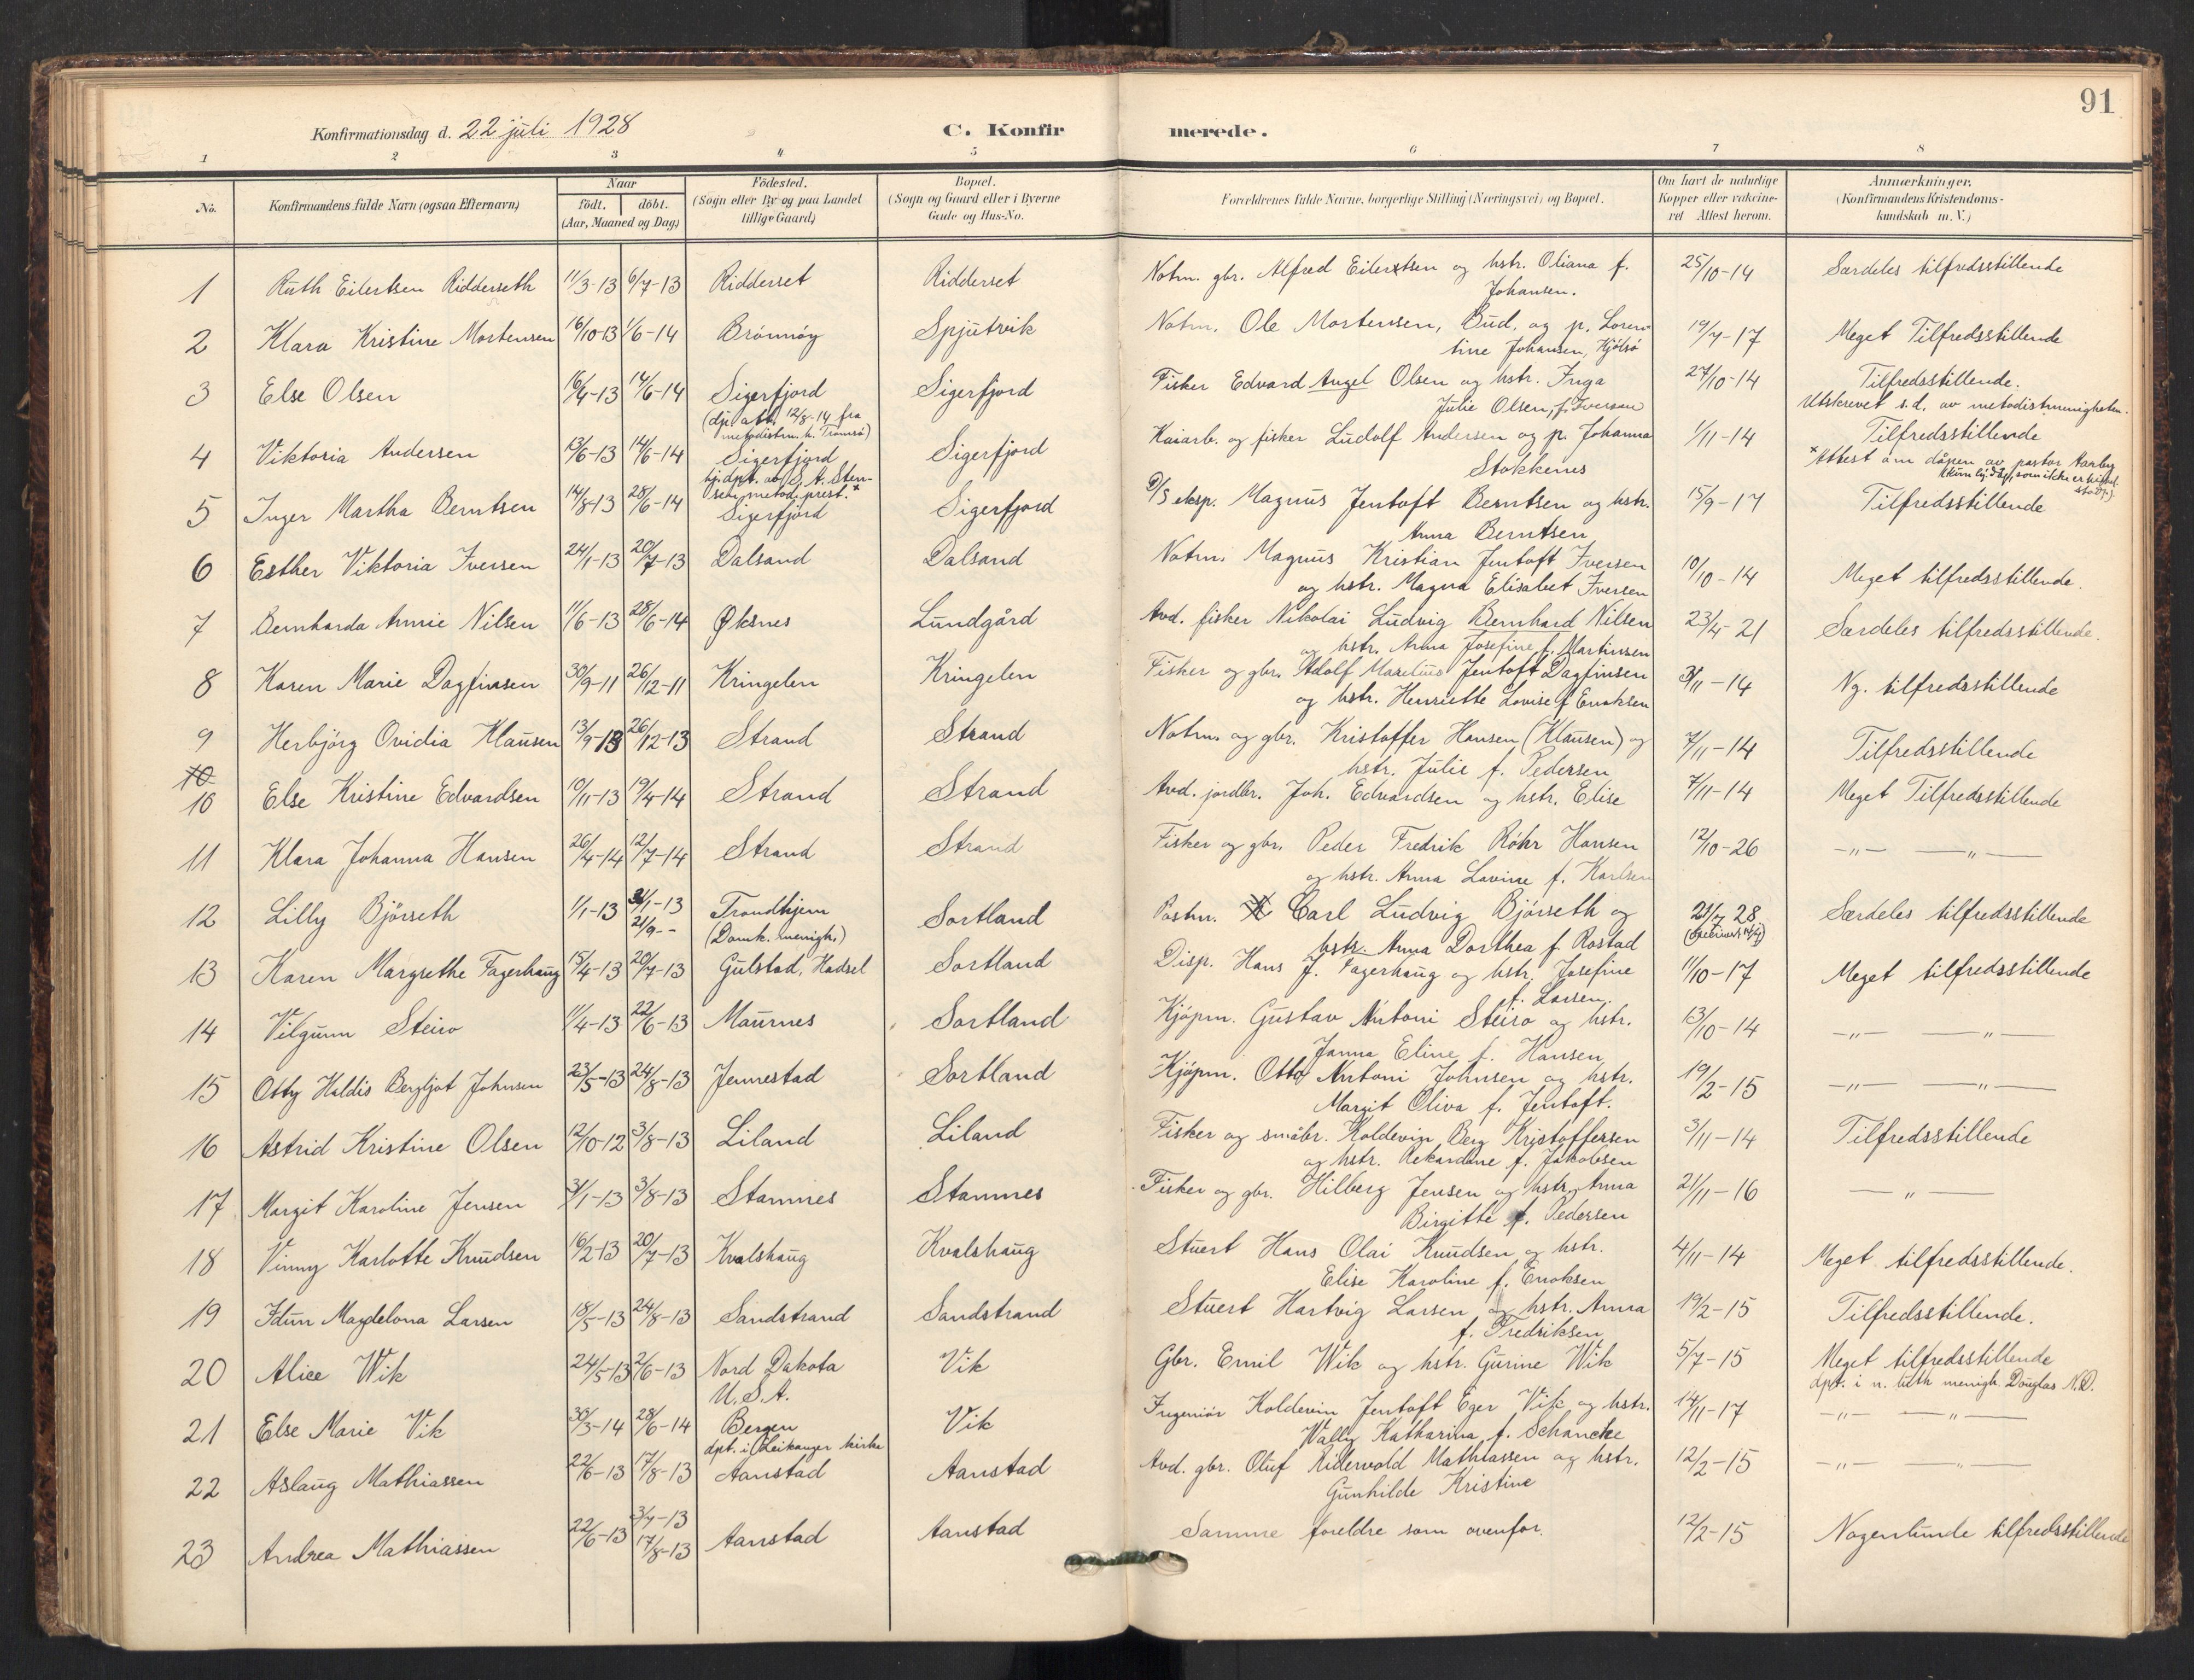 91
Konfirmationsdag d. 22 juli 1928
C. Konfirmerede.
1 2 3 4 5 6 7 8
No.
Konfirmandens fulde Navn (ogsaa Efternavn)
Naar
födt. döbt.
(Aar, Maaned og Dag)
Födested.
(Sogn eller By og paa Landet
tillige Gaard)
Bopæl.
(Sogn og Gaard eller i Byerne
Gade og Hus-No.
Forældrenes fulde Navne, borgerlige Stilling (Næringsvei) og Bopæl.
Om havt de naturlige
Kopper eller vakcine-
ret Attest herom.
Anmærkninger.
(Konfirmandens Kristendoms-
kundskab m. V.)
1 Ruth Eilertsen Ridderseth 11/3-13 6/7-13 Ridderset Ridderset Notm. gbr. Alfred Eilertsen og hstr. Oliana f. 25/10-14 Særdeles tilfredsstillende
Johansen.
2 Klara Kristine Mortensen 16/10-13 1/6-14 Brönnöy Spjutvik Notm. Ole Mortensen, Bud, og p. Loren- 19/7-17 Meget Tilfredsstillende
tine Johansen, Kjölsö
3 Else Olsen 16/4-13 14/6-14 Sigerfjord Sigerfjord Fisker Edvard Angel Olsen og hstr. Inga 27/10-14 Tilfredsstillende.
(dp. att. 12/8-14 fra Julie Olsen, f. Iversen Utskrevet s.d. av metodistmenigheten.
metodistm. k. Tromsö)
4 Viktoria Andersen 13/6-13 14/6-14 Sigerfjord Sigerfjord Kaiarb. og fisker Ludolf Andersen og p. Johanna 1/11-14 Tilfredsstillende
hj.dpt. av A. Sten- Stokkenes × Attest om dåpen av pastor Aarby
sen, metod. prest. ×
5 Inger Martha Berntsen 14/8-13 28/6-14 Sigerfjord Sigerfjord D/S eksp. Magnus Jentoft Berntsen og hstr. 15/9-17 Tilfredsstillende
Anna Berntsen
6 Esther Viktoria Iversen 24/1-13 20/7-13 Dalsand Dalsand Notm. Magnus Kristian Jentoft Iversen 10/10-14 Meget tilfredsstillende.
og hstr. Magna Elisabet Iversen
7 Bernharda Annie Nilsen 11/6-13 28/6-14 Øksnes Lundgård Avd. fisker Nikolai Ludvig Bernhard Nilsen 23/4-21 Særdeles tilfredsstillende.
og hstr. Anna Josefine f. Martinsen
8 Karen Marie Dagfinsen 30/9-11 26/12-11 Kringelen Kringelen Fisker og gbr. Adolf Marelius Jentoft Dagfinsen 3/11-14 Ng. tilfredsstillende
og hstr. Henriette Lovise f. Enoksen
9 Herbjörg Ovidia Klausen 13/9-13 26/12-13 Strand Strand Notm. og gbr. Kristoffer Hansen (Klausen) og 7/11-14 Tilfredsstillende
hstr. Julie f. Pedersen
10
10 Else Kristine Edvardsen 10/11-13 19/4-14 Strand Strand Avd. jordbr. Joh. Edvardsen og hstr. Elise 7/11-14 Meget Tilfredsstillende
11 Klara Johanna Hansen 26/4-14 12/7-14 Strand Strand Fisker og gbr. Peder Fredrik Röhr Hansen 12/10-26 —"— —"—
og hstr. Anna Lovine f. Karlsen
12 Lilly Björseth 1/1-13 31/1-13 Trondhjem Sortland Postm. Carl Ludvig Björseth og 21/7 28 Særdeles tilfredsstillende
21/9-- (Domk. menigh.) hstr. Anna Dorthea f. Rostad
13 Karen Margrethe Fagerhaug 15/4-13 20/7-13 Gulstad, Hadsel Sortland Disp. Hans J. Fagerhaug og hstr. Josefine 11/10-17 Meget tilfredsstillende
f. Larsen.
14 Vilgunn Steiro 11/4-13 22/6-13 Maurnes Sortland Kjöpm. Gustav Antoni Steiro og hstr. 13/10-14 —"— —"—
Janna Eline f. Hansen
15 Otty Haldis Bergljot Johnsen 23/5-13 24/8-13 Jennestad Sortland Kjöpm. Otto Antoni Johnsen og hstr. 19/2-15 —"— —"—
Margit Oliva f. Jentoft.
16 Astrid Kristine Olsen 12/10-12 3/8-13 Liland Liland Fisker og småbr. Koldevin Berg Kristoffersen 3/11-14 Tilfredsstillende
og hstr. Rekardine f. Jakobsen
17 Margit Karoline Jensen 3/1-13 3/8-13 Stamnes Stamnes Fisker og gbr. Hilberg Jensen og hstr. Anna 21/11-16 —"—
Birgitte f. Pedersen
18 Vinny Karlotte Knudsen 16/2-13 20/7-13 Kvalshaug Kvalshaug Stuert Hans Olai Knudsen og hstr. 4/11-14 Meget tilfredsstillende.
Elise Karoline f. Enoksen
19 Idun Magdelona Larsen 18/5-13 24/8-13 Sandstrand Sandstrand Stuert Hartvig Larsen og hstr. Anna 19/2-15 Tilfredsstillende.
f. Fredriksen
20 Alice Wik 24/5-13 2/6-13 Nord Dakota Vik Gbr. Emil Wik og hstr. Gurine Wik 5/7-15 Meget tilfredsstillende
U.S.A. dpt. i n. luth menigh. Douglas N.D.
21 Else Marie Vik 30/3-14 28/6-14 Bergen Vik Ingeniör Koldevin Jentoft Eger Vik og hstr. 14/11-17 —"— —"—
dpt. i Leikanger kirke Wally Katharina f. Schancke
22 Aslaug Mathiassen 22/6-13 17/8-13 Aanstad Aanstad Avd. gbr. Oluf Ridervold Mathiassen og hstr. 12/2-15 —"— —"—
Gunhilde Kristine
23 Andrea Mathiassen 22/6-13 3/7-13 Aanstad Aanstad Samme foreldre som ovenfor. 12/2-15 Nogenlunde tilfredsstillende
17/8-13